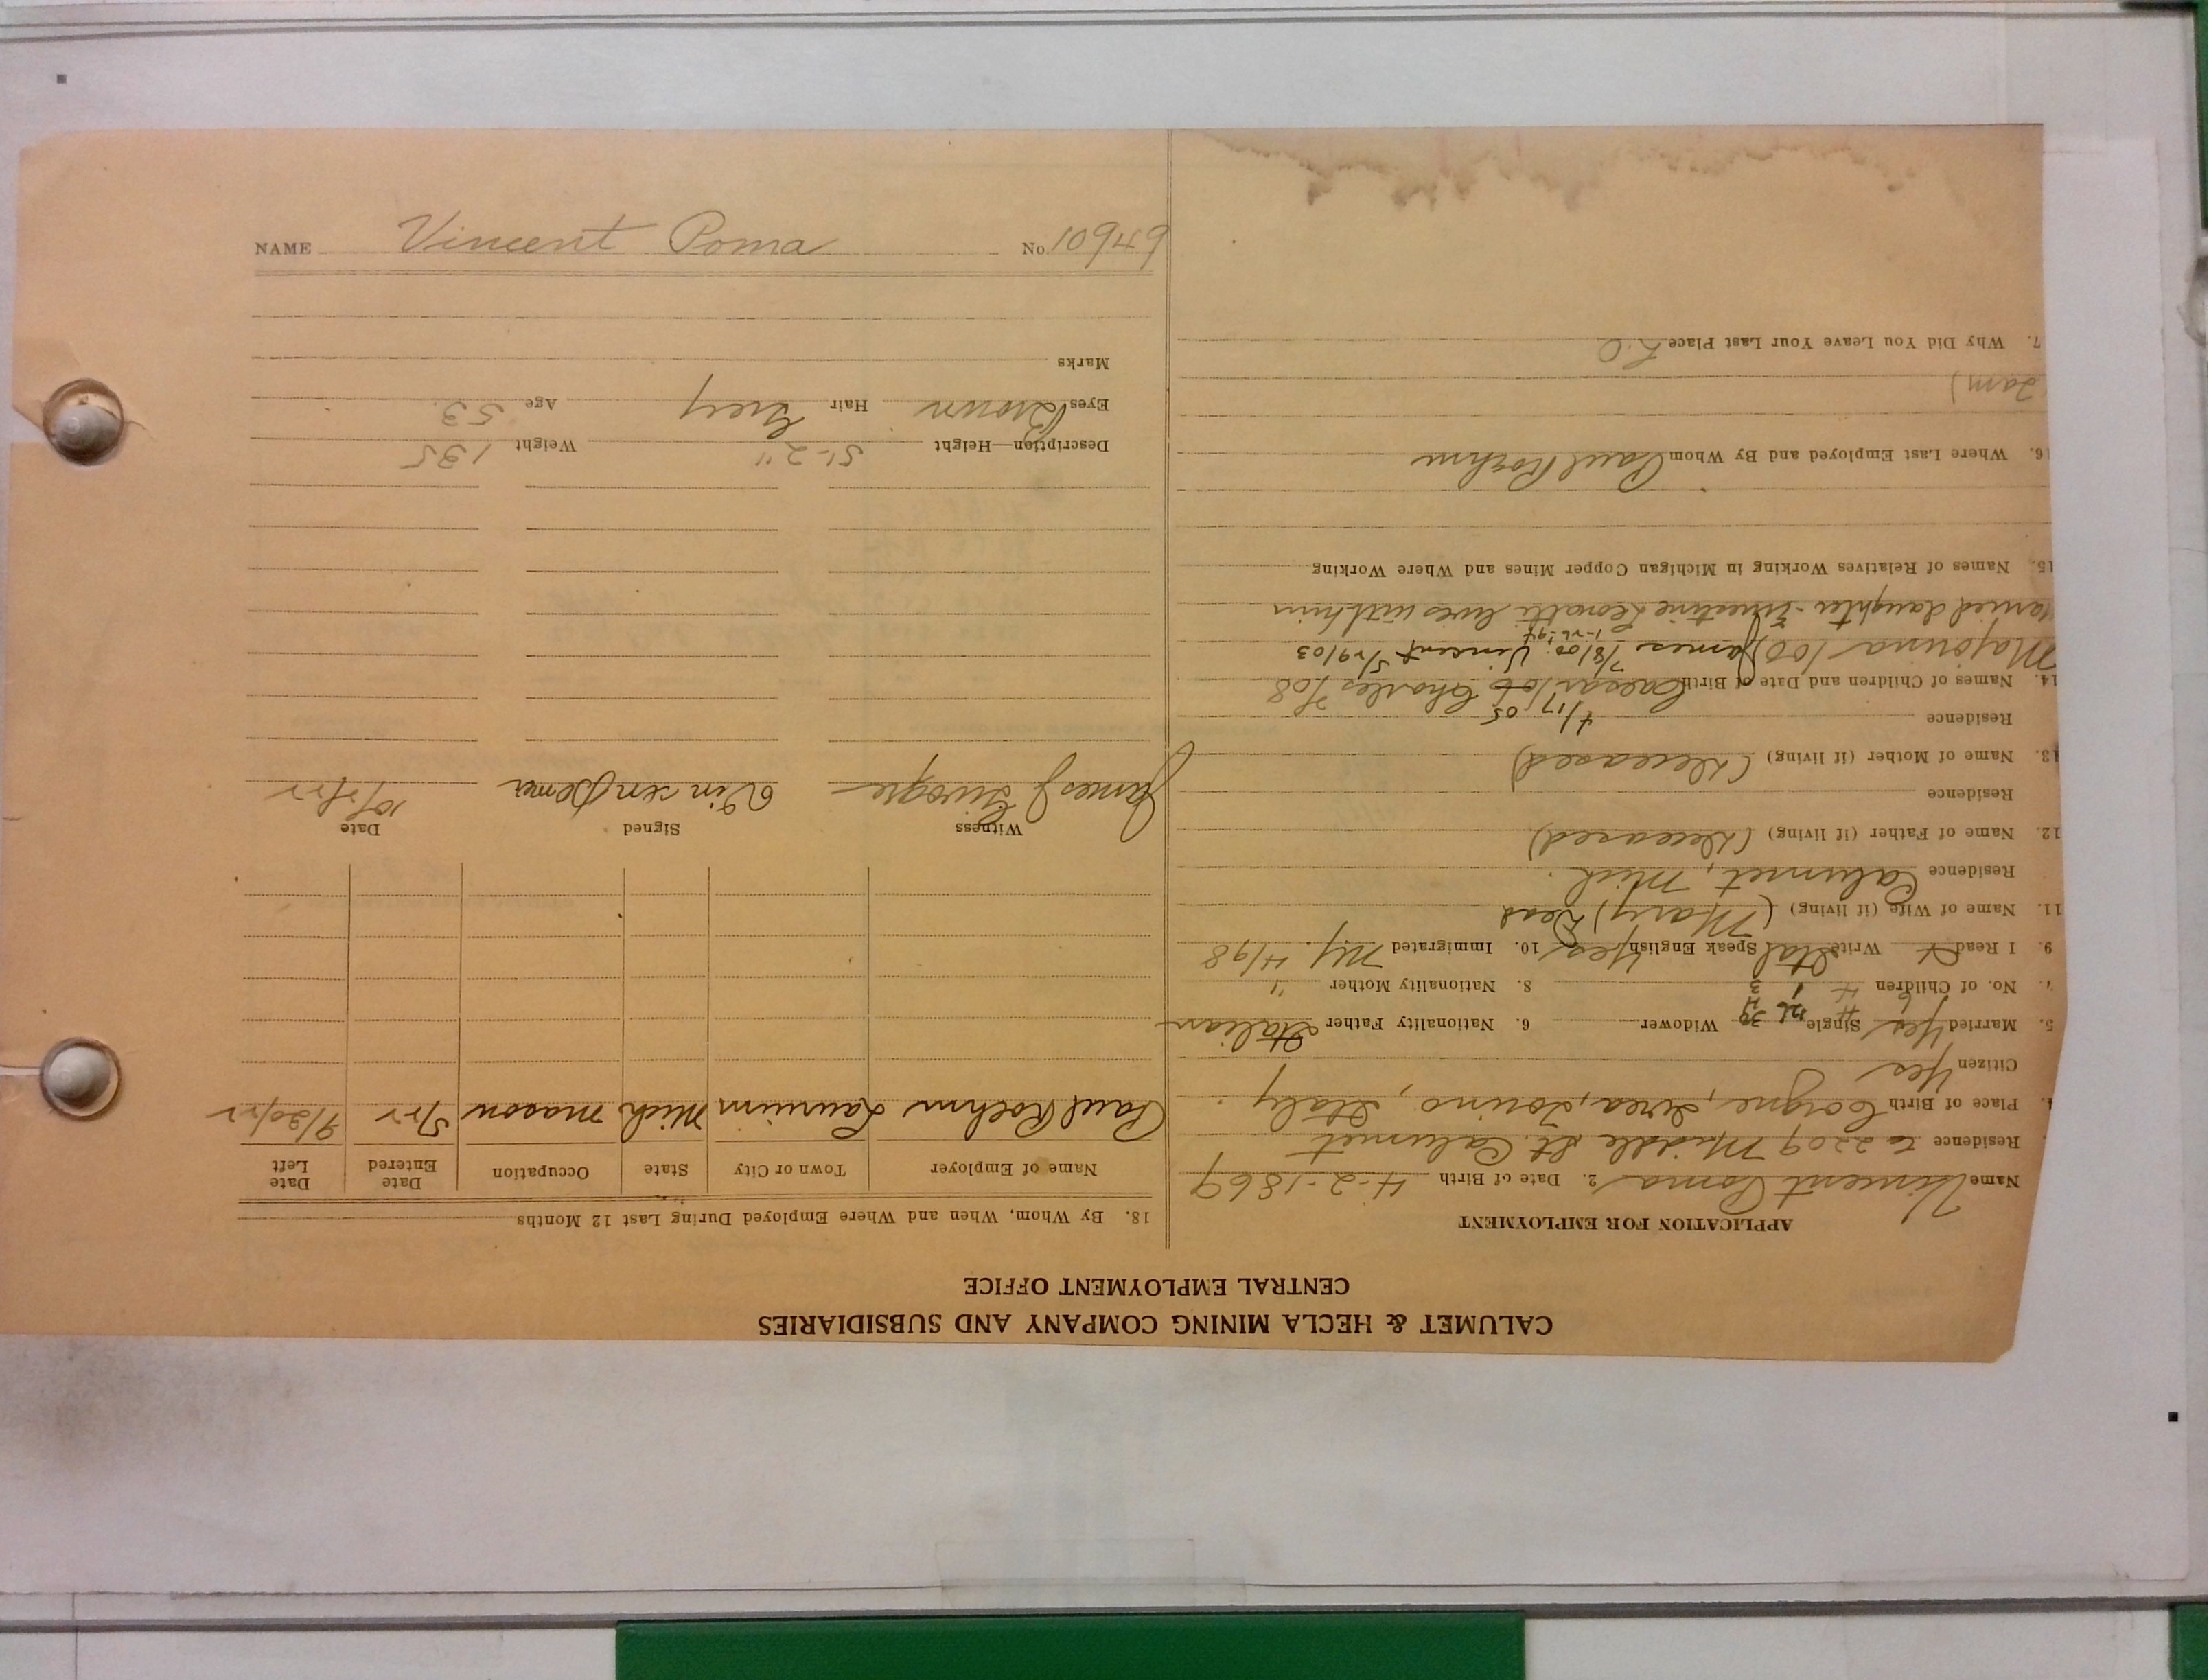 CALUMET & HECLA MINING COMPANY AND SUBSIDIARIES
CENTRAL EMPLOYMENT OFFICE
APPLICATION FOR EMPLOYMENT
Name Vincent Poma 2. Date of Birth 4-2-1869
Residence to 2209 Middle St. Calumet
Place of Birth Corgne, Ivrea, Torino, Italy.
Citizen Yes
5. Married Yes Single Widower 6. Nationality Father Italian
7. No. of Children 8. Nationality Mother "
9. I Read Write Ital Speak English Yes 10. Immigrated NY. 4/98
11. Name of Wife (if living) (Mary) Dead
Residence Calumet, Mich.
12. Name of Father (if living) (Deceased)
Residence
13. Name of Mother (if living) (Deceased)
Residence
4/17/05
14. Names of Children and Date of Birth Caesar /06 Charles 7/08
Majorina /00) James 7/8/00; Vincent 5/29/03
married daughter - Ernestine lives with him
15. Names of Relatives Working in Michigan Copper Mines and Where Working
16. Where Last Employed and By Whom Paul Roehm
7. Why Did You Leave Your Last Place L.O
18. By Whom, When and Where Employed During Last 12 Months
Name of Employer Town or City State Occupation Date Entered Date Left
Paul Roehm Laurium Mich mason 5/22 9/20/22
Witness Signed Date
James J 10/5/22
Description—Height 5'-2" Weight 135
Eyes Brown Hair Grey Age 53.
Marks
NAME Vincent Poma No. 10949